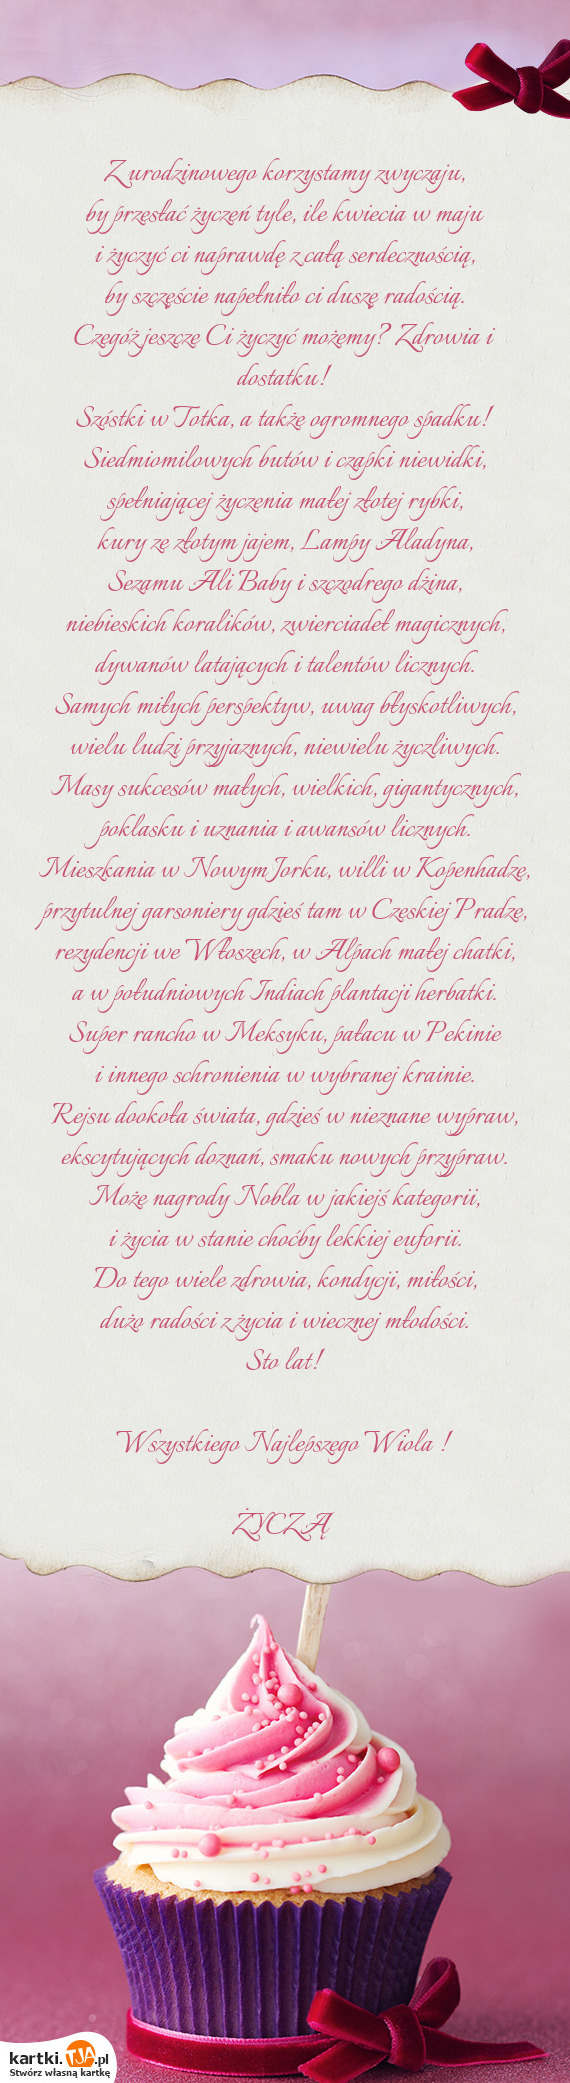 Z urodzinowego korzystamy zwyczaju,
by przesłać życzeń tyle, ile kwiecia w maju
i życzyć ci naprawdę z całą serdecznością,
by szczęście napełniło ci duszę radością.
Czegóż jeszcze Ci życzyć możemy? Zdrowia i
dostatku!
Szóstki w Totka, a także ogromnego spadku!
Siedmiomilowych butów i czapki niewidki,
spełniającej życzenia małej złotej rybki,
kury ze złotym jajem, Lampy Aladyna,
Sezamu Ali Baby i szczodrego dżina,
niebieskich koralików, zwierciadeł magicznych,
dywanów latających i talentów licznych.
Samych miłych perspektyw, uwag błyskotliwych,
wielu ludzi przyjaznych, niewielu życzliwych.
Masy sukcesów małych, wielkich, gigantycznych,
poklasku i uznania i awansów licznych.
Mieszkania w Nowym Jorku, willi w Kopenhadze,
przytulnej garsoniery gdzieś tam w Czeskiej Pradze,
rezydencji we Włoszech, w Alpach małej chatki,
a w południowych Indiach plantacji herbatki.
Super rancho w Meksyku, pałacu w Pekinie
i innego schronienia w wybranej krainie.
Rejsu dookoła świata, gdzieś w nieznane wypraw,
ekscytujących doznań, smaku nowych przypraw.
Może nagrody Nobla w jakiejś kategorii,
i życia w stanie choćby lekkiej euforii.
Do tego wiele zdrowia, kondycji, miłości,
dużo radości z życia i wiecznej młodości.
Sto lat!
Wszystkiego Najlepszego Wiola !
ŻYCZĄ
kartki.TJA.pl
Stwórz własną kartkę